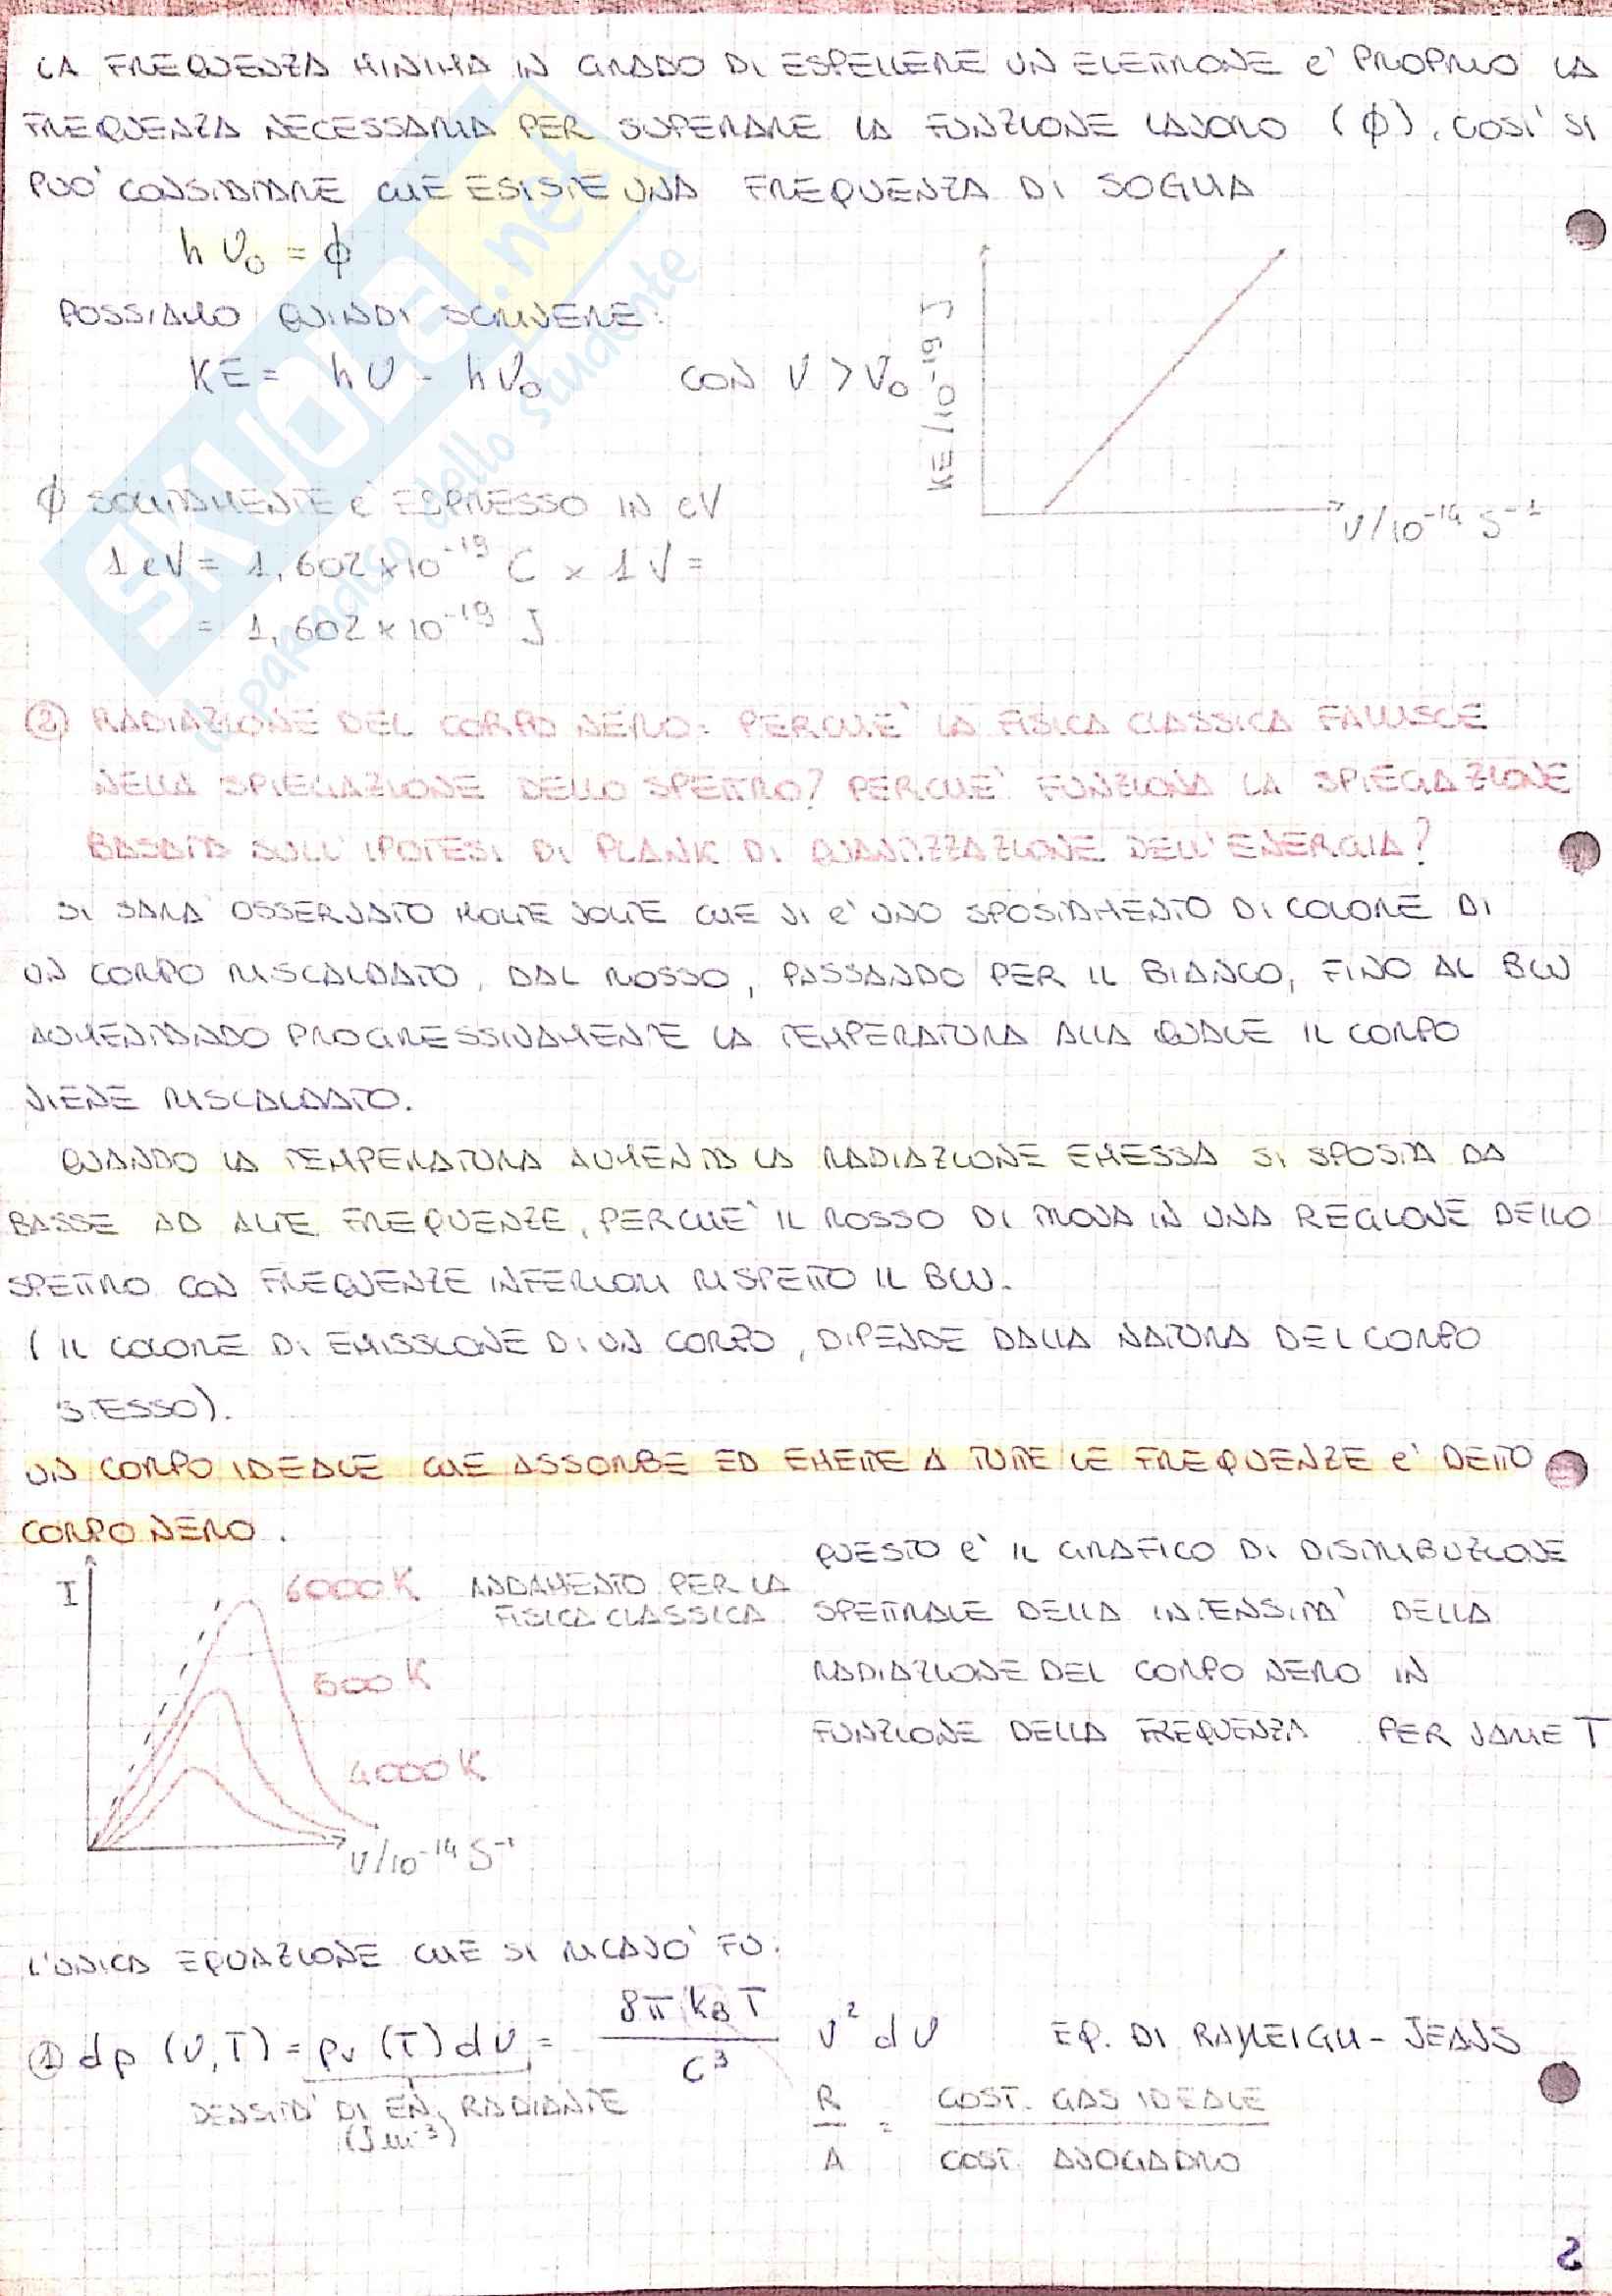 LA FREQUENZA MINIMA IN GRADO DI ESPELLERE UN ELETTRONE E' PROPRIO LA
FREQUENZA NECESSARIA PER SUPERARE LA FUNZIONE LAVORO (ϕ), COSI' SI
PUO' CONSTATARE CHE ESISTE UNA FREQUENZA DI SOGLIA
hν₀ = ϕ
POSSIAMO QUINDI SCRIVERE:
KE = hν - hν₀ CON ν > ν₀
KE/10⁻¹⁹ J
ν/10⁻¹⁴ S⁻¹
ϕ SOLITAMENTE E' ESPRESSO IN eV
1 eV = 1,602×10⁻¹⁹ C × 1 V =
= 1,602×10⁻¹⁹ J
② RADIAZIONE DEL CORPO NERO: PERCHE' LA FISICA CLASSICA FALLISCE
NELLA SPIEGAZIONE DELLO SPETTRO? PERCHE' FUNZIONA LA SPIEGAZIONE
BASATA SULL'IPOTESI DI PLANK DI QUANTIZZAZIONE DELL'ENERGIA?
SI SARA' OSSERVATO MOLTE VOLTE CHE VI E' UNO SPOSTAMENTO DI COLORE DI
UN CORPO RISCALDATO, DAL ROSSO, PASSANDO PER IL BIANCO, FINO AL BLU
AUMENTANDO PROGRESSIVAMENTE LA TEMPERATURA ALLA QUALE IL CORPO
VIENE RISCALDATO.
QUANDO LA TEMPERATURA AUMENTA LA RADIAZIONE EMESSA SI SPOSTA DA
BASSE AD ALTE FREQUENZE, PERCHE' IL ROSSO DI TROVA IN UNA REGIONE DELLO
SPETTRO CON FREQUENZE INFERIORI RISPETTO IL BLU.
(IL COLORE DI EMISSIONE DI UN CORPO, DIPENDE DALLA NATURA DEL CORPO
STESSO).
UN CORPO IDEALE CHE ASSORBE ED EMETTE A TUTTE LE FREQUENZE E' DETTO
CORPO NERO.
I
6000 K
ANDAMENTO PER LA
FISICA CLASSICA
500 K
4000 K
ν/10⁻¹⁴ S⁻¹
QUESTO E' IL GRAFICO DI DISTRIBUZIONE
SPETTRALE DELLA INTENSITA' DELLA
RADIAZIONE DEL CORPO NERO IN
FUNZIONE DELLA FREQUENZA PER VARIE T
L'UNICA EQUAZIONE CHE SI RICAVO' FU:
① dρ (ν,T) = ρᵥ (T) dν = 8π k_B T / C³ ν² dν EQ. DI RAYLEIGH-JEANS
DENSITA' DI EN. RADIANTE
(J m⁻³)
R / A = COST. GAS IDEALE / COST. AVOGADRO
2
SKUOLA.net
il paradiso dello studente